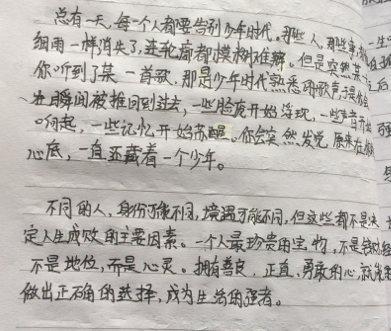 总有一天，每一个人都要告别少年时代。那些人，那些事，
细雨一样消失了，连轮廓都模糊难辨。但是突然某
你听到了某一首歌，那是少年时代熟悉的歌声，于是你会
在瞬间被推回到过去，一些脸庞开始浮现，一些声音开始
响起，一些记忆开始苏醒。你会突然发觉，原来在你
心底，一直还藏着一个少年。
不同的人，身份可能不同，境遇可能不同，但这些都不是决
定人生成败的主要因素。一个人最珍贵的宝物，不是钱财
不是地位，而是心灵。拥有善良、正直、勇敢的心，就能
做出正确的选择，成为生活的强者。